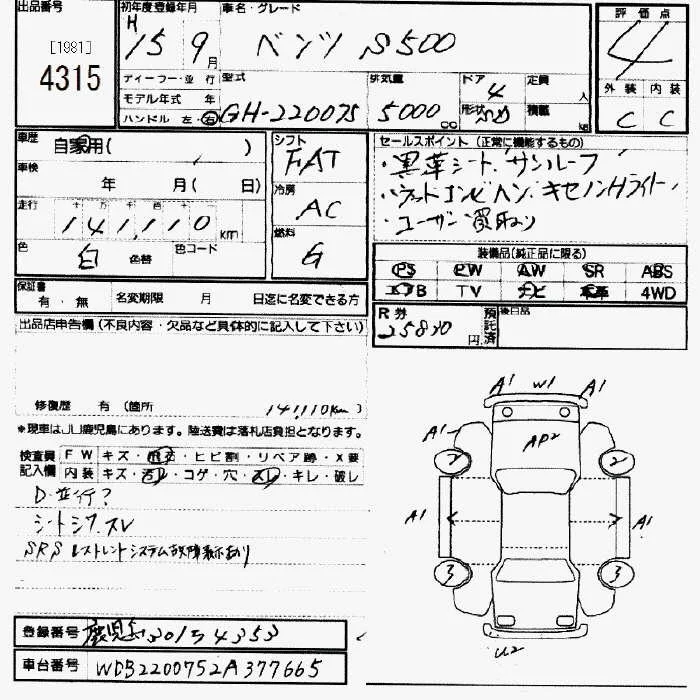 出品番号
[1981]
4315
初年度登録年月
H
15 9月
車名・グレード
ベンツ S500
評価点
4
外装 内装
C C
ディーラー・並行
モデル年式 年
ハンドル 左・右
型式
GH-220075
排気量
5000 cc
ドア
4
形状 SD
定員 人
積載 kg
車歴
自家用( )
車検
年 月( 日)
走行
十万千百十一
141,110 km
色
白 色替
色コード
シフト
FAT
冷房
AC
燃料
G
セールスポイント(正常に機能するもの)
・黒革シート、サンルーフ
・ウッドコンビハン、キセノンHライト
・ユーザー買取り
装備品(純正品に限る)
PS PW AW SR ABS
エアB TV ナビ 本革 4WD
保証書
有・無 名変期限 月 日迄に名変できる方
R券
25830 円
預託済
後日品
出品店申告欄(不良内容・欠品など具体的に記入して下さい)
修復歴 有(箇所 141,110km)
*現車はJU鹿児島にあります。陸送費は落札店負担となります。
検査員記入欄
FW キズ・飛石・ヒビ割・リペア跡・X要
内装 キズ・汚れ・コゲ・穴・スレ・キレ・破レ
D・並行?
シートシワ、スレ
SRSレストレントシステム故障表示あり
A1 W1 A1
A1 AP2
2 2
A1 A1
3 3
U2
登録番号 鹿児島301 4353
車台番号 WDB2200752A377665